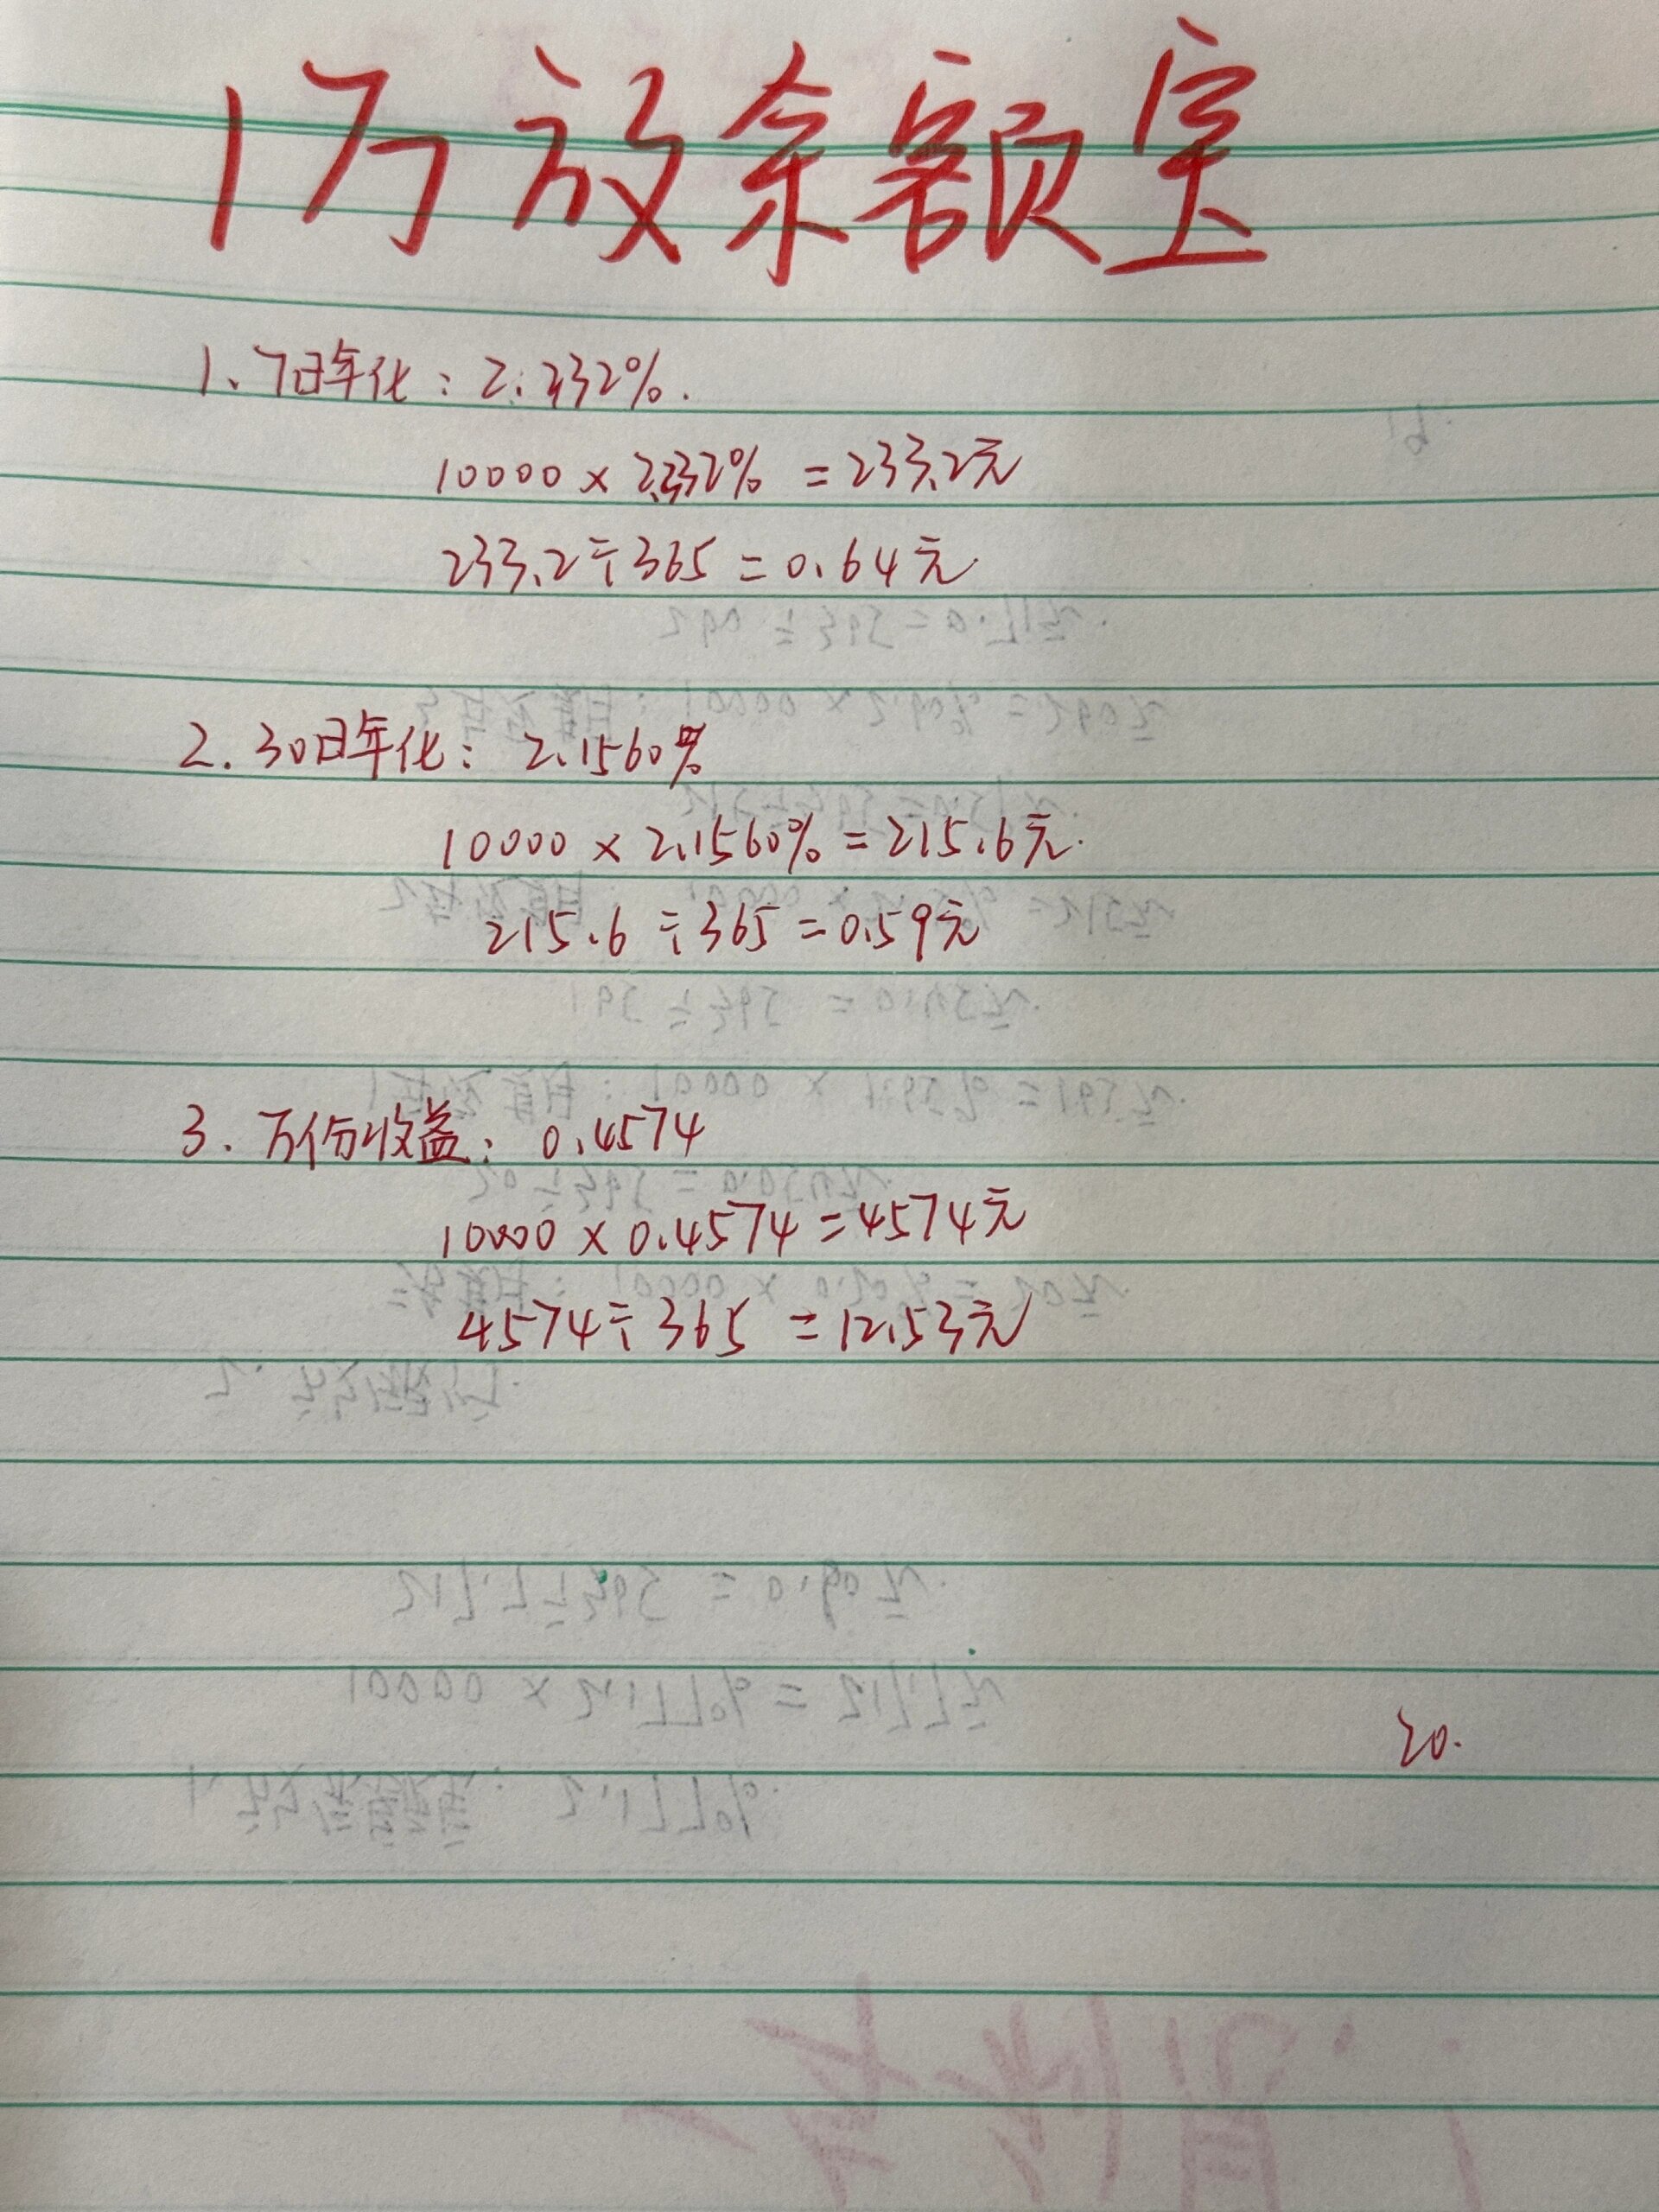 1万放余额宝
1、7日年化：2.332%.
10000 × 2.332% = 233.2元
233.2 ÷ 365 = 0.64元
2. 30日年化：2.1560%
10000 × 2.1560% = 215.6元.
215.6 ÷ 365 = 0.59元
3. 万份收益：0.4574
10000 × 0.4574 = 4574元
4574 ÷ 365 = 12.53元
20.